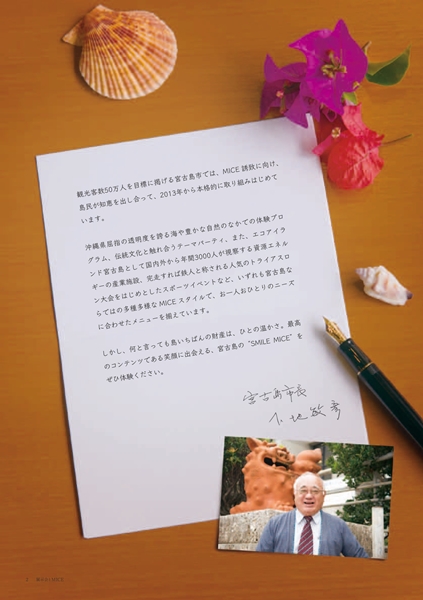 観光客数50万人を目標に掲げる宮古島市では、MICE 誘致に向け、
島民が知恵を出し合って、2013年から本格的に取り組みはじめて
います。
沖縄県屈指の透明度を誇る海や豊かな自然のなかでの体験プロ
グラム、伝統文化と触れ合うテーマパーティ、また、エコアイラ
ンド宮古島として国内外から年間3000人が視察する資源エネル
ギーの産業施設、完走すれば鉄人と称される人気のトライアスロ
ン大会をはじめとしたスポーツイベントなど、いずれも宮古島な
らではの多種多様な MICE スタイルで、お一人おひとりのニーズ
に合わせたメニューを揃えています。
しかし、何と言っても島いちばんの財産は、ひとの温かさ。最高
のコンテンツである笑顔に出会える、宮古島の“SMILE MICE”を
ぜひ体験ください。
宮古島市長
下地敏彦